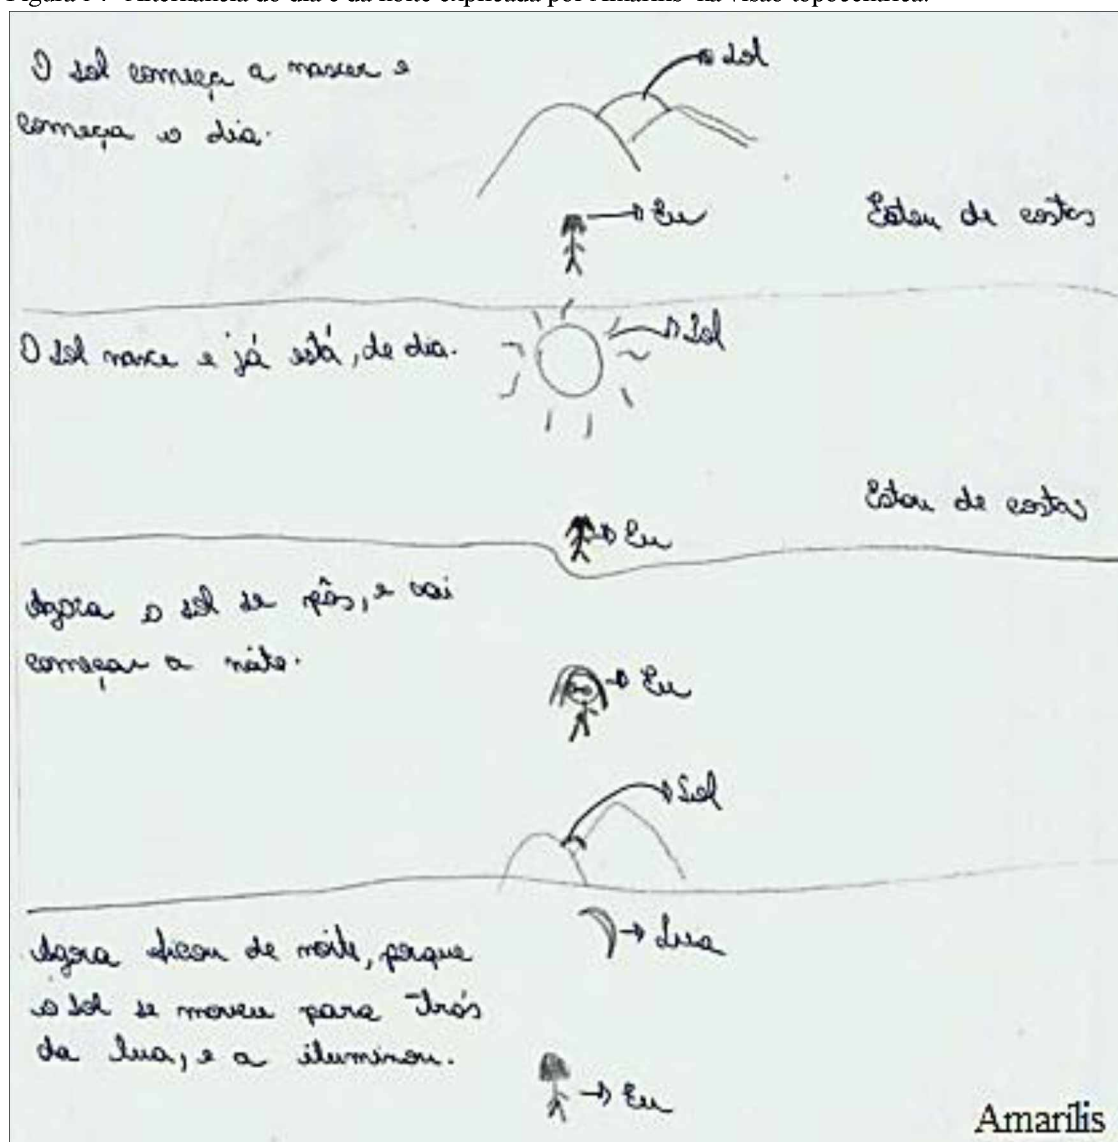 O sol começa a nascer e
começa o dia.
Sol
Eu
Estou de costas
O Sol nasce e já está, de dia.
Sol
Estou de costas
Eu
Agora o sol se pôs, e vai
começar a noite.
Eu
Sol
Agora ficou de noite, porque
o sol se moveu para trás
da lua, e a iluminou.
Lua
Eu
Amarílis